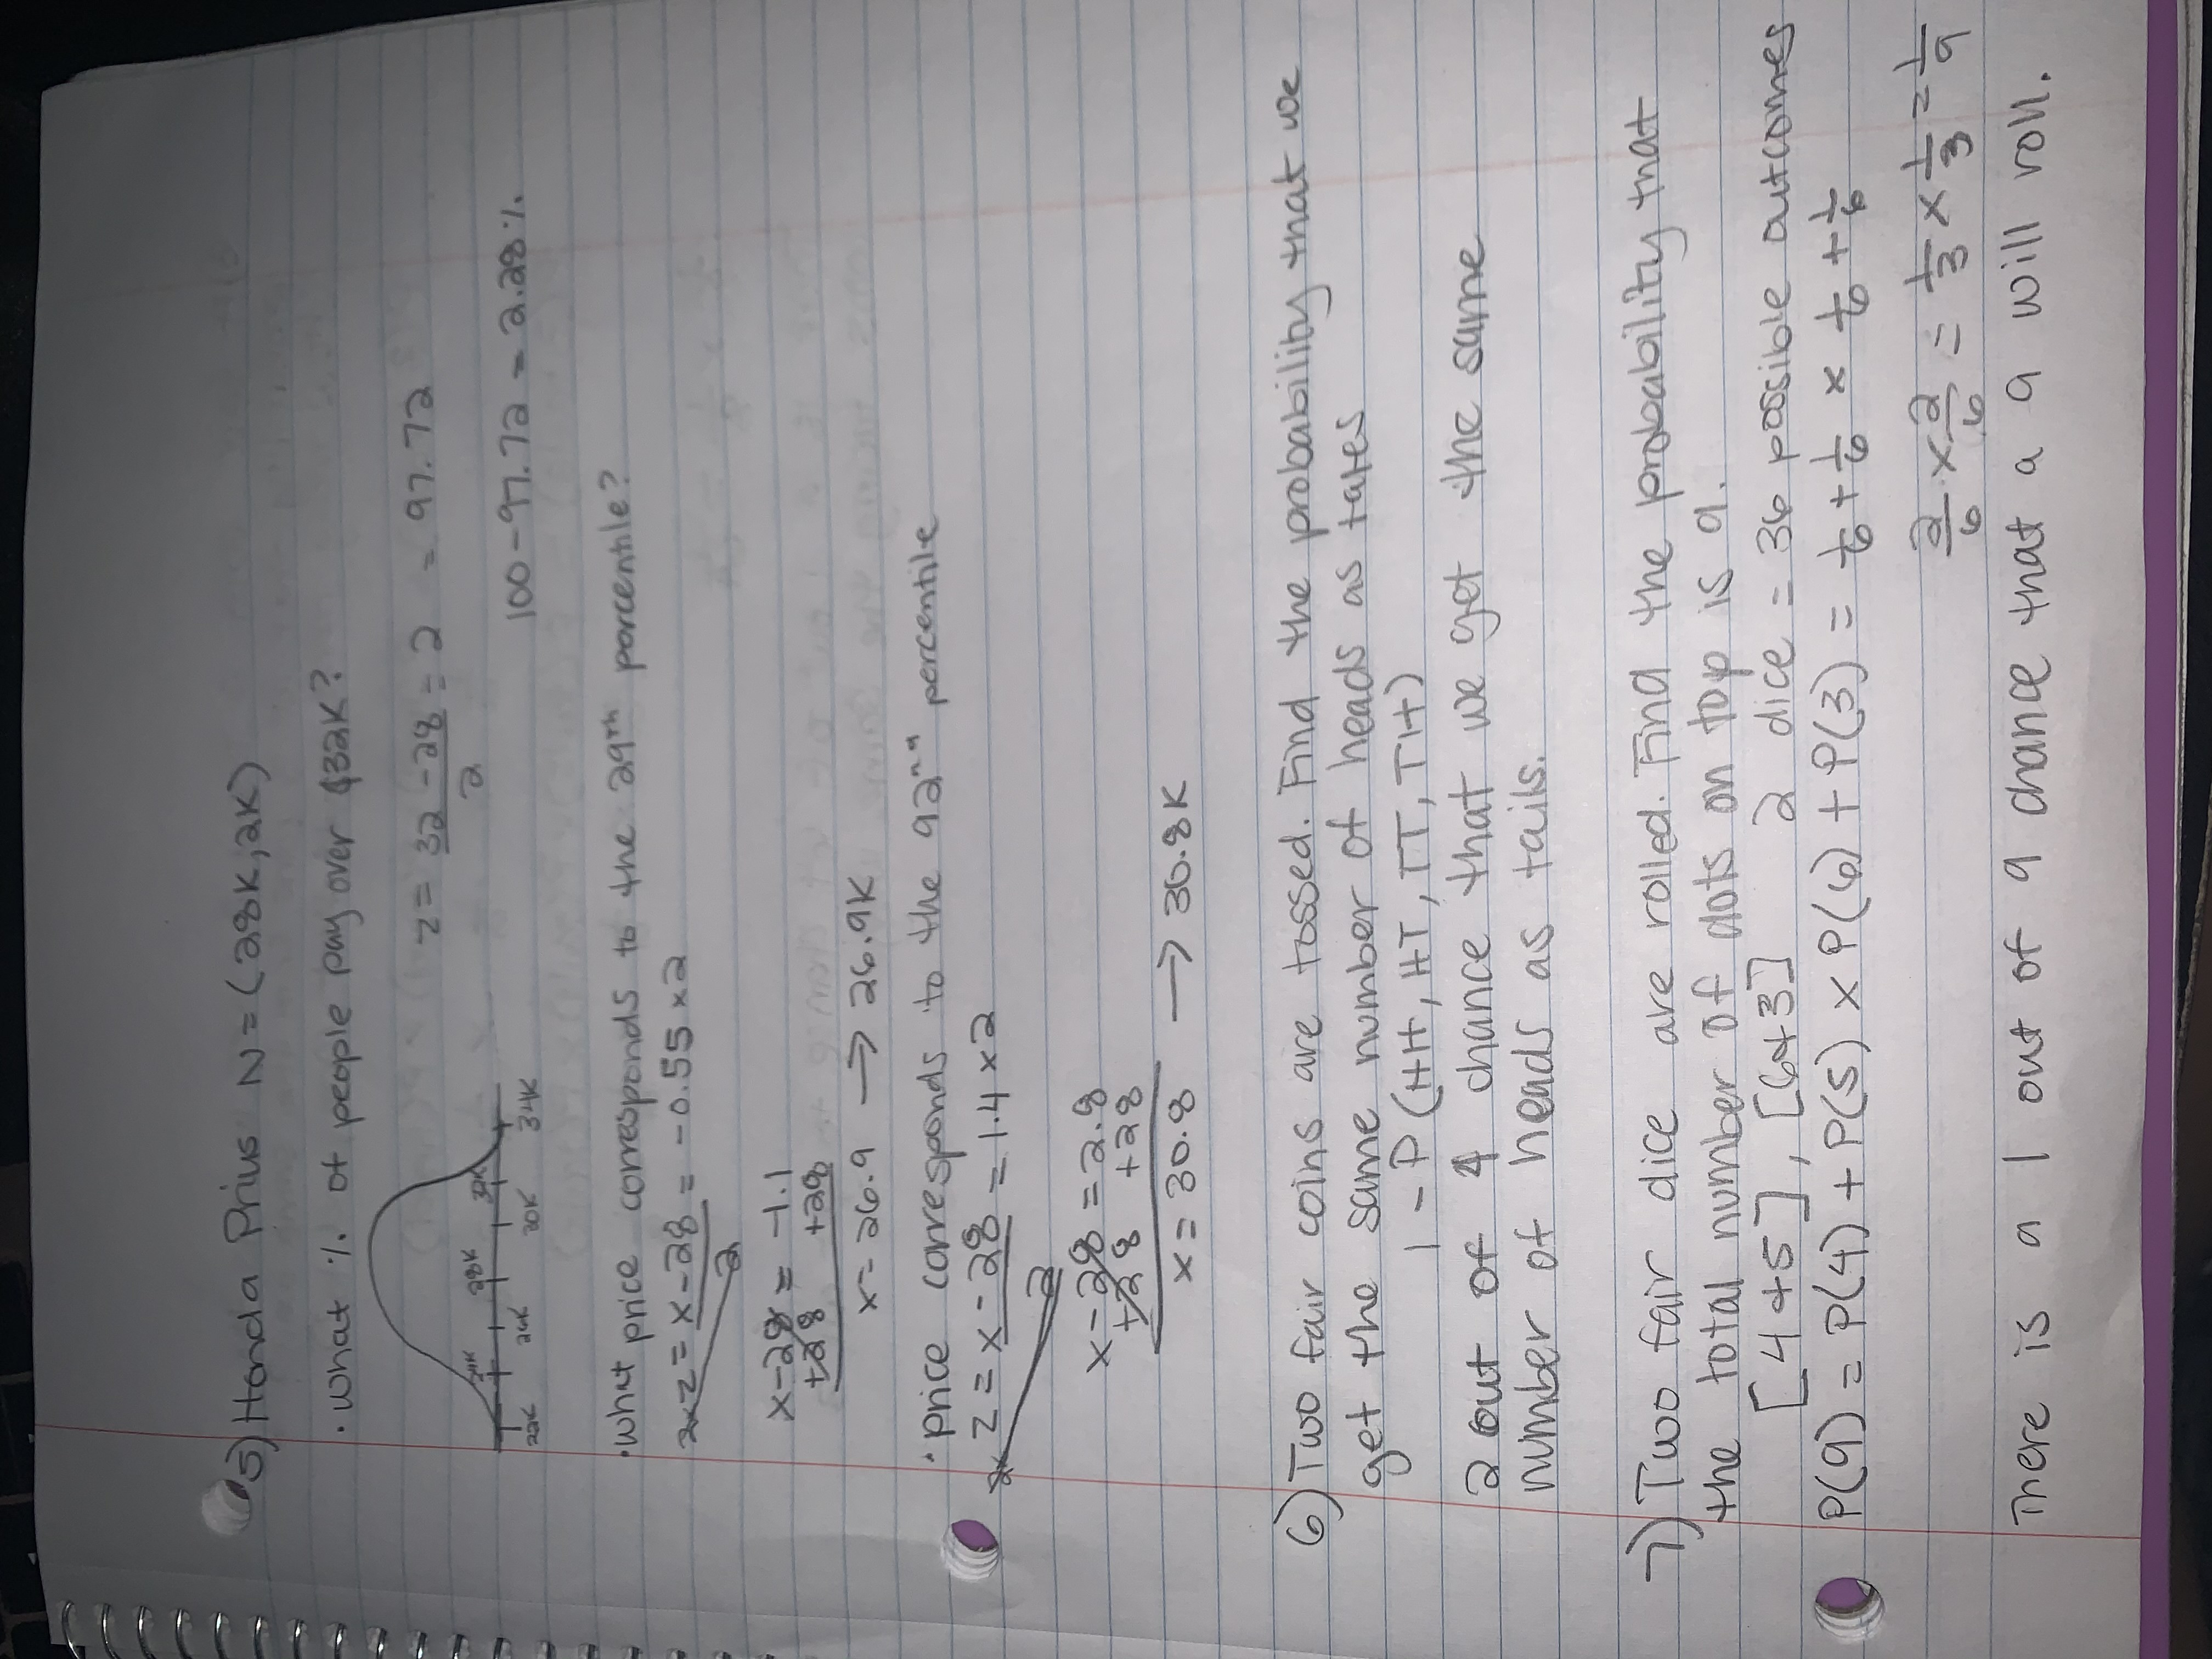 5) Honda Prius N = (28K, 2K)
· What % of people pay over $32K?
z = 32 - 28 / 2 = 2 = 97.72
24K 28K 32K
22K 26K 30K 34K
100 - 97.72 = 2.28%
· What price corresponds to the 29th percentile?
2x z = x - 28 / 2 = -0.55 x 2
x - 28 = -1.1
+28 +28
x = 26.9 → 26.9K
· price corresponds to the 92nd percentile
2x z = x - 28 / 2 = 1.4 x 2
x - 28 = 2.8
+28 +28
x = 30.8 → 30.8K
6) Two fair coins are tossed. Find the probability that we
get the same number of heads as tales
1 - P(HH, HT, TT, TH)
2 out of 4 chance that we get the same
number of heads as tails.
7) Two fair dice are rolled. Find the probability that
the total number of dots on top is 9.
[4+5], [6+3] 2 dice = 36 possible outcomes
P(9) = P(4) + P(5) x P(6) + P(3) = 1/6 + 1/6 x 1/6 + 1/6
2/6 x 2/6 = 1/3 x 1/3 = 1/9
There is a 1 out of 9 chance that a 9 will roll.